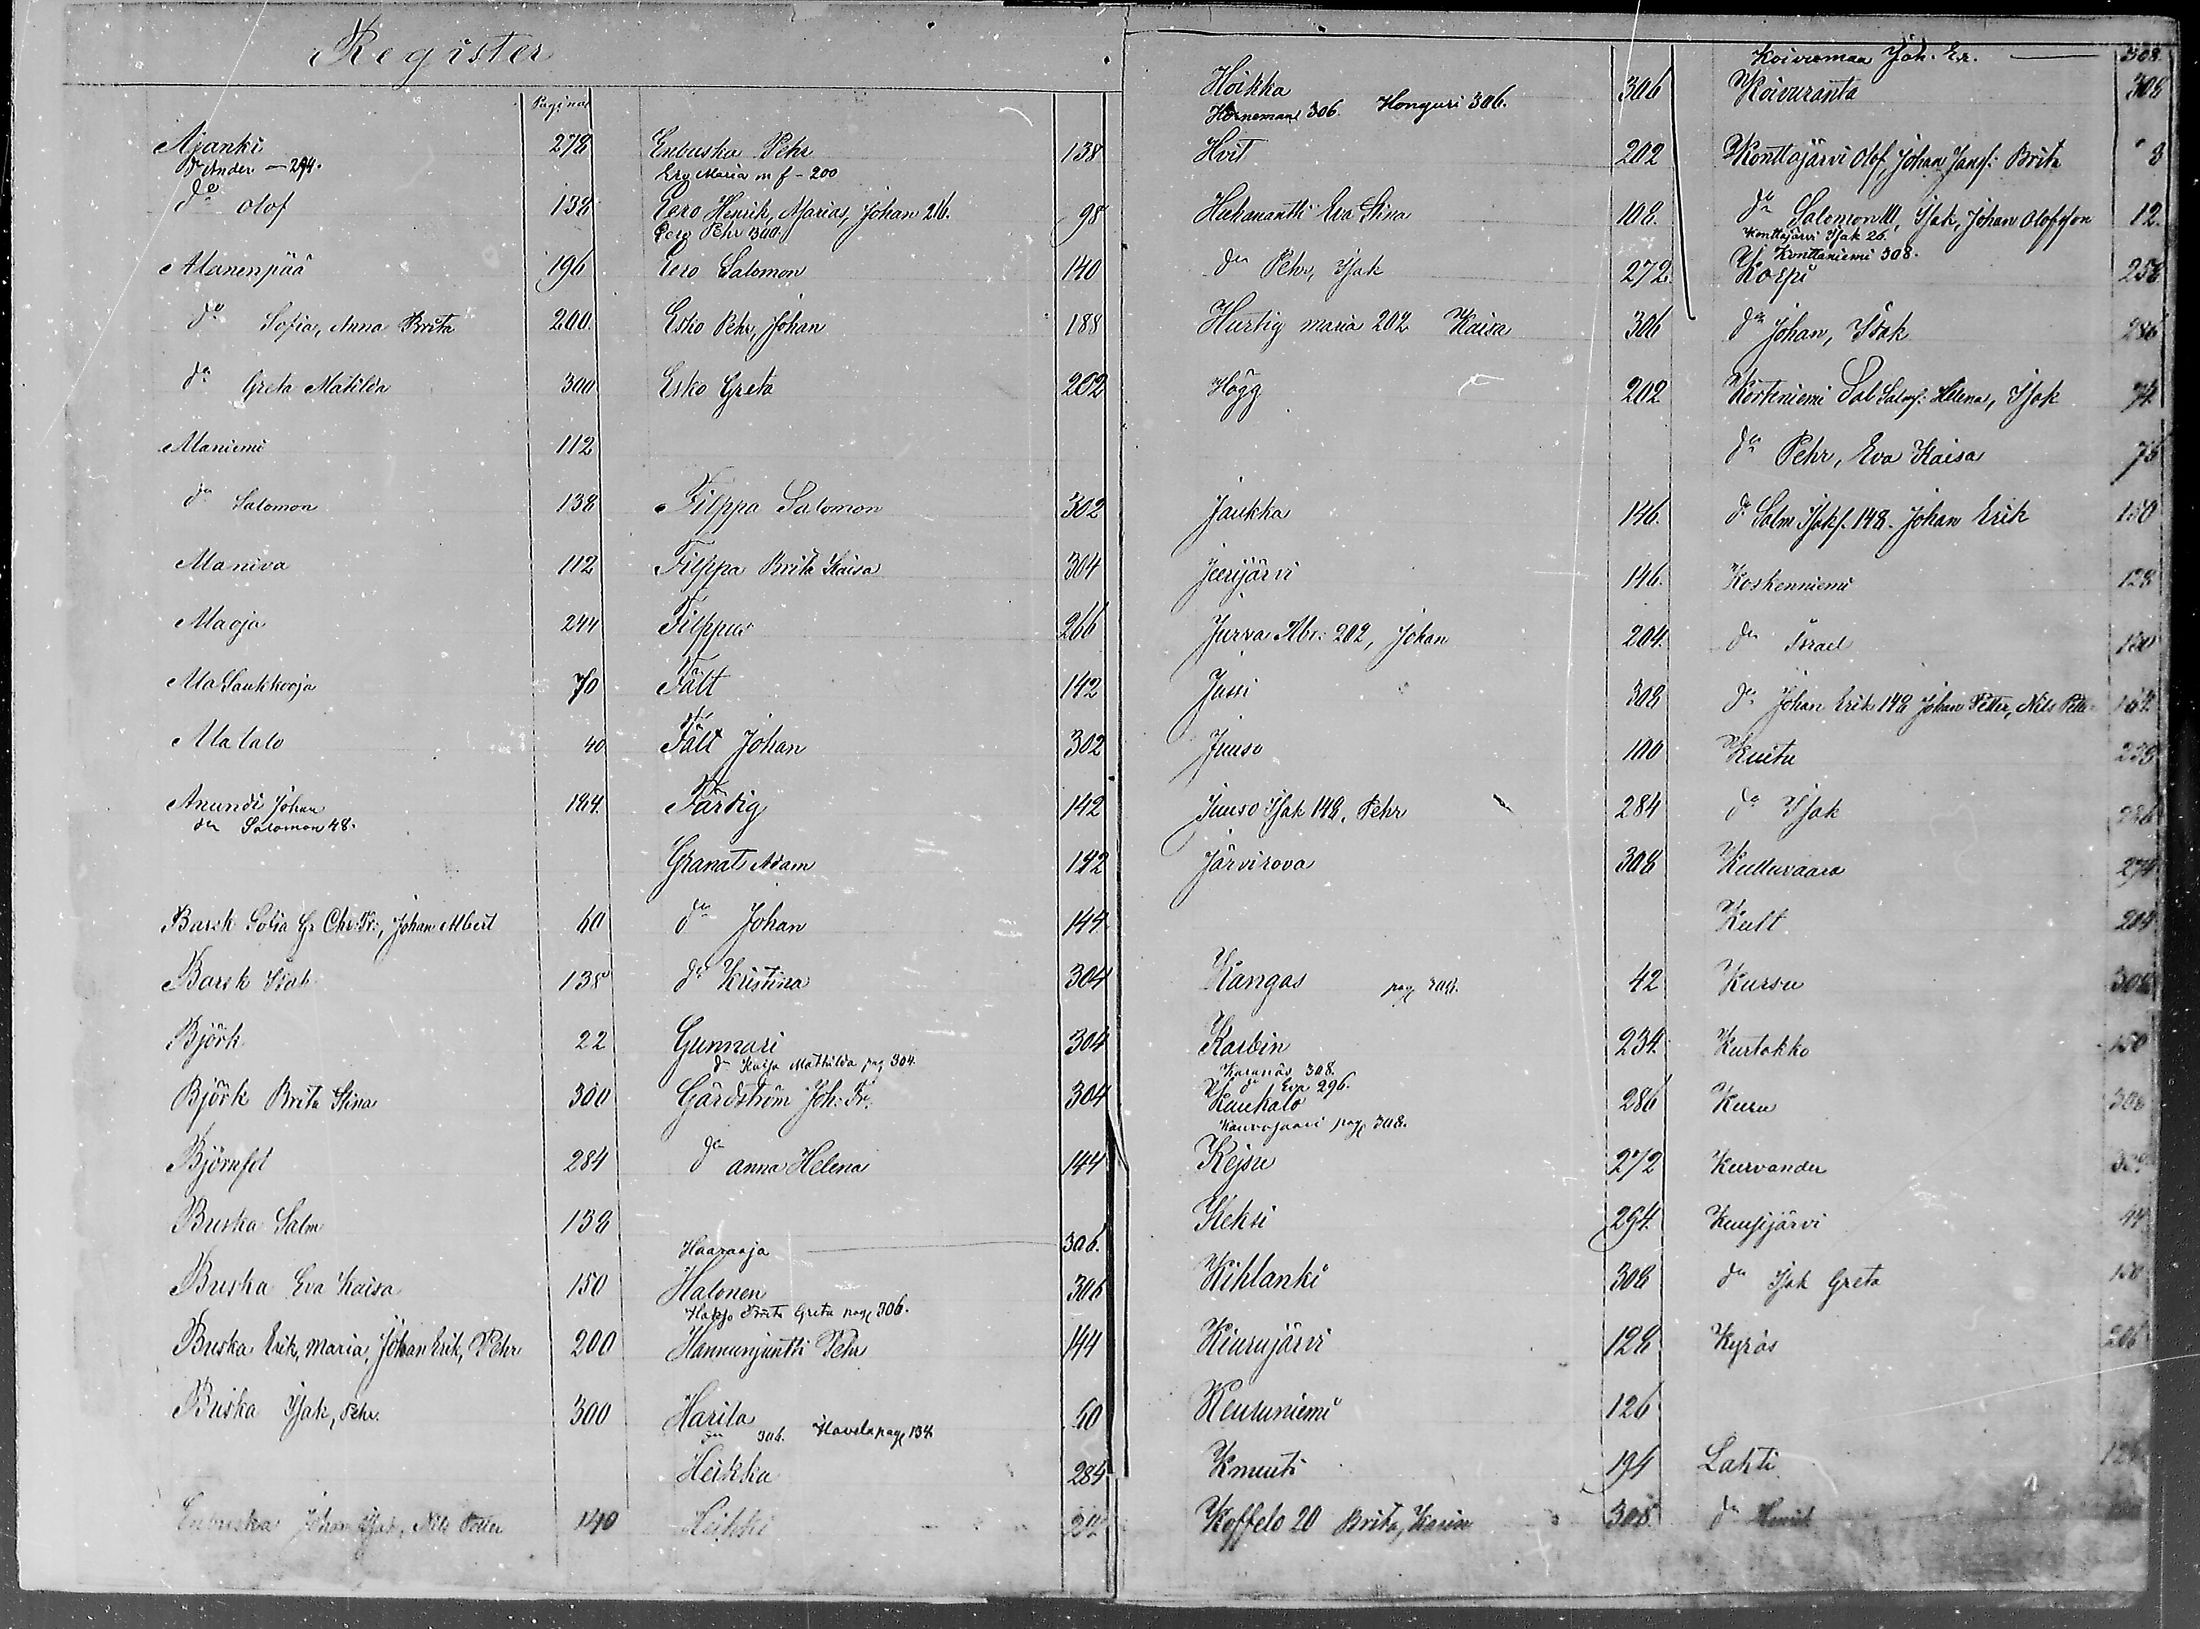 Register
Pagina
Ajanki 278
do Ander — 294.
do Olof 138
Alanenpää 196
do Sofia, Anna Brita 200.
do Greta Matilda 300
Alaniemi 112
do Salomon 138
Alaniva 112
Alaoja 244
Ala Saukkooja 70
Alatalo 40
Anundi Johan 184.
do Salomon 48.
Barsk Sofia Gr. Chr. Fr:, Johan Albert 60
Barsk Isak 138
Björk 22
Björk Brita Stina 300
Björnfot 284
Buska Salm 138
Buska Eva Kaisa 150
Buska Erik, Maria, Johan Erik, Pehr 200
Buska Isak, Pehr. 300
Enbuska Johan Isak, Nils Petter 140
Enbuska Pehr 138
Ero Maria m f — 200
Eero Henrik, Marias, Johan 216. 98
Eero Pehr 300.
Eero Salomon 140
Esko Pehr, Johan 188
Esko Greta 202
Filppa Salomon 302
Filppa Brita Kaisa 304
Filppus 266
Fält 142
Fält Johan 302
Färdig 142
Granat Adam 142
do Johan 144
do Kristina 304
Gunnari 304
do Kaisa Mathilda pag 304
Gärdström Joh: Fr: 304
do Anna Helena 144
Haaraoja 306.
Halonen 306
Brita Greta page 306.
Hannunjuntti Pehr 144
Harila 60
do 306. Havela page 134
Heikka 284
Heikki
Hoikka 306
Hornemann 306. Honguri 306.
Hvit 202
Hukanantti Eva Stina 108.
do Pehr, Isak 272.
Hurtig Maria 202 Kaisa 306
Högg 202
Jaukka 146.
Jeerijärvi 146.
Jurva Abr: 202, Johan 204.
Jussi 308
Juuso 100
Juuso Isak 148, Pehr 284
Järvirova 308
Kangas pag 308. 42
Karbin 234.
308.
do Eva 296.
Kauhalo 286
page 308.
Kejsu 272
Keksi 294.
Kihlanki 308
Kiurujärvi 128
Keutuniemi 126
Knuuti 194
Koffelo 20 Brita, Karin 308.
Koivumaa Joh. Er. — 308.
Koivuranta 308
Konttajärvi Olof, Johan Jans: Brita 8
do Salomon III, Isak, Johan Olofsson 12.
Konttajärvi Isak 26.
Konttaniemi 308.
Korpi 258
do Johan, Isak 286
Korteniemi Sal Salm: Helena, Isak 74
do Pehr, Eva Kaisa 76
do Salm Isaks. 148. Johan Erik 150
Koskenniemi 128
do Israel 150
do Johan Erik 148 Johan Petter, Nils Petter
Kuitu
do Isak
Kulluvaara 274
Kult 204
Kursu 308
Kurtakko 150
Kuru 308
Kurvander
Kuusijärvi 44
do Isak Greta 150
Kyrös 206
Lahti
do Henrik